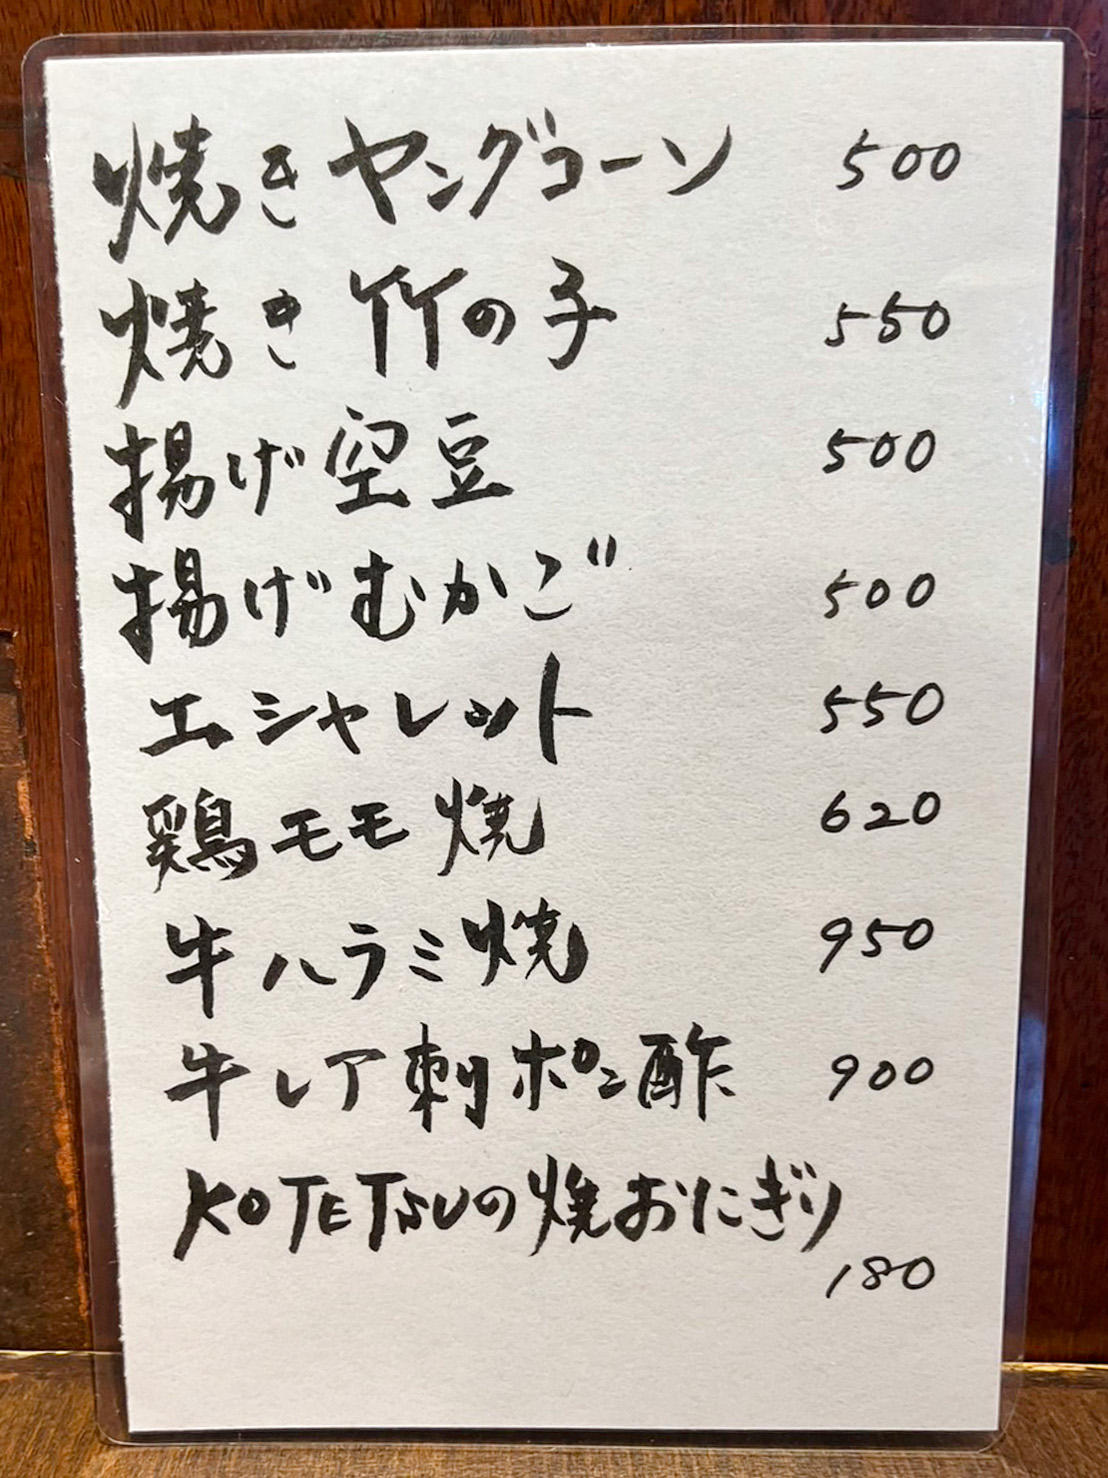 焼きヤングコーン 500
焼き竹の子 550
揚げ空豆 500
揚げむかご 500
エシャレット 550
鶏モモ焼 620
牛ハラミ焼 950
牛レア刺ポン酢 900
KOTETSUの焼おにぎり
180